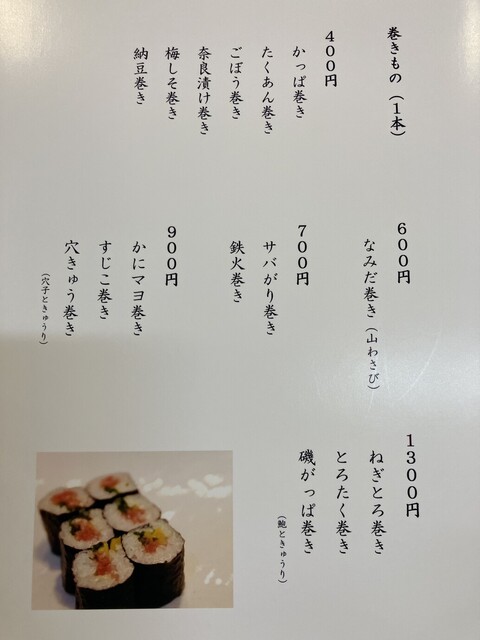 巻きもの（１本）
４００円
かっぱ巻き
たくあん巻き
ごぼう巻き
奈良漬け巻き
梅しそ巻き
納豆巻き
６００円
なみだ巻き（山わさび）
７００円
サバがり巻き
鉄火巻き
９００円
かにマヨ巻き
すじこ巻き
穴きゅう巻き
（穴子ときゅうり）
１３００円
ねぎとろ巻き
とろたく巻き
磯がっぱ巻き
（鮑ときゅうり）